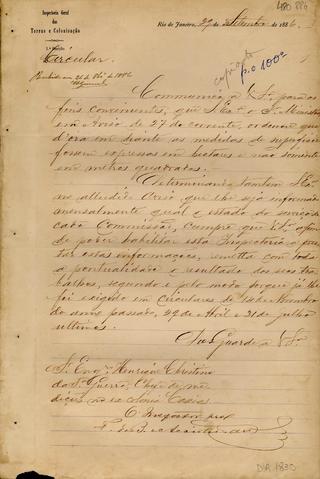 Inspectoria Geral
das
Terras e Colonização
Rio de Janeiro, 29 de Setembro de 1886.
Circular.
Communico a V. S.ª para os
fins convenientes, que S. Ex.ª o Sr. Ministro
em Aviso de 27 do corrente, ordenou que
d'ora em diante as medidas de superficie
fossem expressas em hectares e não somente
em metros quadrados.
Determinando tambem S. Ex.ª
no alludido Aviso que lhe seja informado
mensalmente qual o estado do serviço de
cada Commissão, cumpre que V. S.ª afim
de poder habilitar esta Inspectoria a pres-
tar estas informações, remetta com toda
a pontualidade o resultado dos seos tra-
balhos, segundo e pelo modo porque já lhe
foi exigido em Circulares de
do anno passado, 29 de Abril e 31 de Julho
ultimos.
Deos Guarde a V. S.ª
Sr. Eng.º Henrique Christino
da S.ª Guerra, Chefe de me-
dições na ex colonia Caxias
O Inspector
DIA 1830